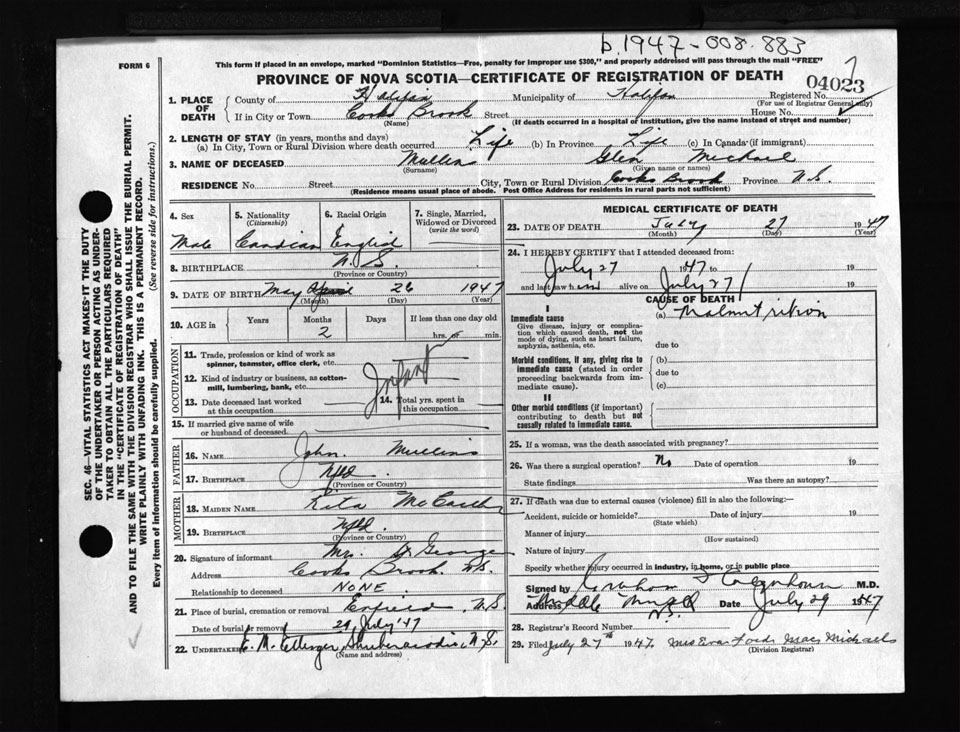 b.1947-008.883
FORM 6
This form if placed in an envelope, marked "Dominion Statistics—Free, penalty for improper use $300," and properly addressed will pass through the mail "FREE"
PROVINCE OF NOVA SCOTIA—CERTIFICATE OF REGISTRATION OF DEATH
04023
Registered No.
(For use of Registrar General only)
1. PLACE OF DEATH
County of Halifax Municipality of Halifax
If in City or Town Cooks Brook Street House No.
(Name) (If death occurred in a hospital or institution, give the name instead of street and number)
2. LENGTH OF STAY (in years, months and days)
(a) In City, Town or Rural Division where death occurred Life (b) In Province Life (c) In Canada (if immigrant)
3. NAME OF DECEASED Mullins Glen Michael
(Surname) (Given name or names)
RESIDENCE No. Street City, Town or Rural Division Cooks Brook Province N.S.
(Residence means usual place of abode. Post Office Address for residents in rural parts not sufficient)
4. Sex
Male
5. Nationality (Citizenship)
Candian
6. Racial Origin
English
7. Single, Married, Widowed or Divorced (write the word)
8. BIRTHPLACE N.S.
(Province or Country)
9. DATE OF BIRTH May 26 1947
(Month) (Day) (Year)
10. AGE in Years Months Days If less than one day old
2 hrs. or min.
OCCUPATION
11. Trade, profession or kind of work as spinner, teamster, office clerk, etc.
12. Kind of industry or business, as cotton-mill, lumbering, bank, etc.
Infant
13. Date deceased last worked at this occupation
14. Total yrs. spent in this occupation
15. If married give name of wife or husband of deceased
FATHER
16. NAME John Mullins
17. BIRTHPLACE Nfld.
(Province or Country)
MOTHER
18. MAIDEN NAME Rita
19. BIRTHPLACE Nfld.
(Province or Country)
20. Signature of informant Mrs. George
Address Cooks Brook. N.S.
Relationship to deceased NONE
21. Place of burial, cremation or removal Enfield. N.S.
Date of burial or removal 29 July '47
22. UNDERTAKER E. M. Ettinger, Shubenacadie, N.S.
(Name and address)
MEDICAL CERTIFICATE OF DEATH
23. DATE OF DEATH July 27 1947
(Month) (Day) (Year)
24. I HEREBY CERTIFY that I attended deceased from:
July 27 1947 to 19
and last saw him alive on July 27 19
CAUSE OF DEATH
I
Immediate cause (a) Malnutrition
Give disease, injury or complication which caused death, not the mode of dying, such as heart failure, asphyxia, asthenia, etc.
due to
Morbid conditions, if any, giving rise to immediate cause (stated in order proceeding backwards from immediate cause).
(b)
due to
(c)
II
Other morbid conditions (if important) contributing to death but not causally related to immediate cause.
25. If a woman, was the death associated with pregnancy?
26. Was there a surgical operation? No Date of operation 19
State findings Was there an autopsy?
27. If death was due to external causes (violence) fill in also the following:—
Accident, suicide or homicide? Date of injury 19
(State which)
Manner of injury
(How sustained)
Nature of injury
Specify whether injury occurred in industry, in home, or in public place
Signed by M.D.
Address Middle Date July 29 1947
28. Registrar's Record Number
29. Filed July 27th 1947.
(Division Registrar)
SEC. 46—VITAL STATISTICS ACT MAKES IT THE DUTY
OF THE UNDERTAKER OR PERSON ACTING AS UNDERTAKER TO OBTAIN ALL THE PARTICULARS REQUIRED
IN THE "CERTIFICATE OF REGISTRATION OF DEATH"
AND TO FILE THE SAME WITH THE DIVISION REGISTRAR WHO SHALL ISSUE THE BURIAL PERMIT.
WRITE PLAINLY WITH UNFADING INK. THIS IS A PERMANENT RECORD.
Every item of information should be carefully supplied. (See reverse side for instructions.)